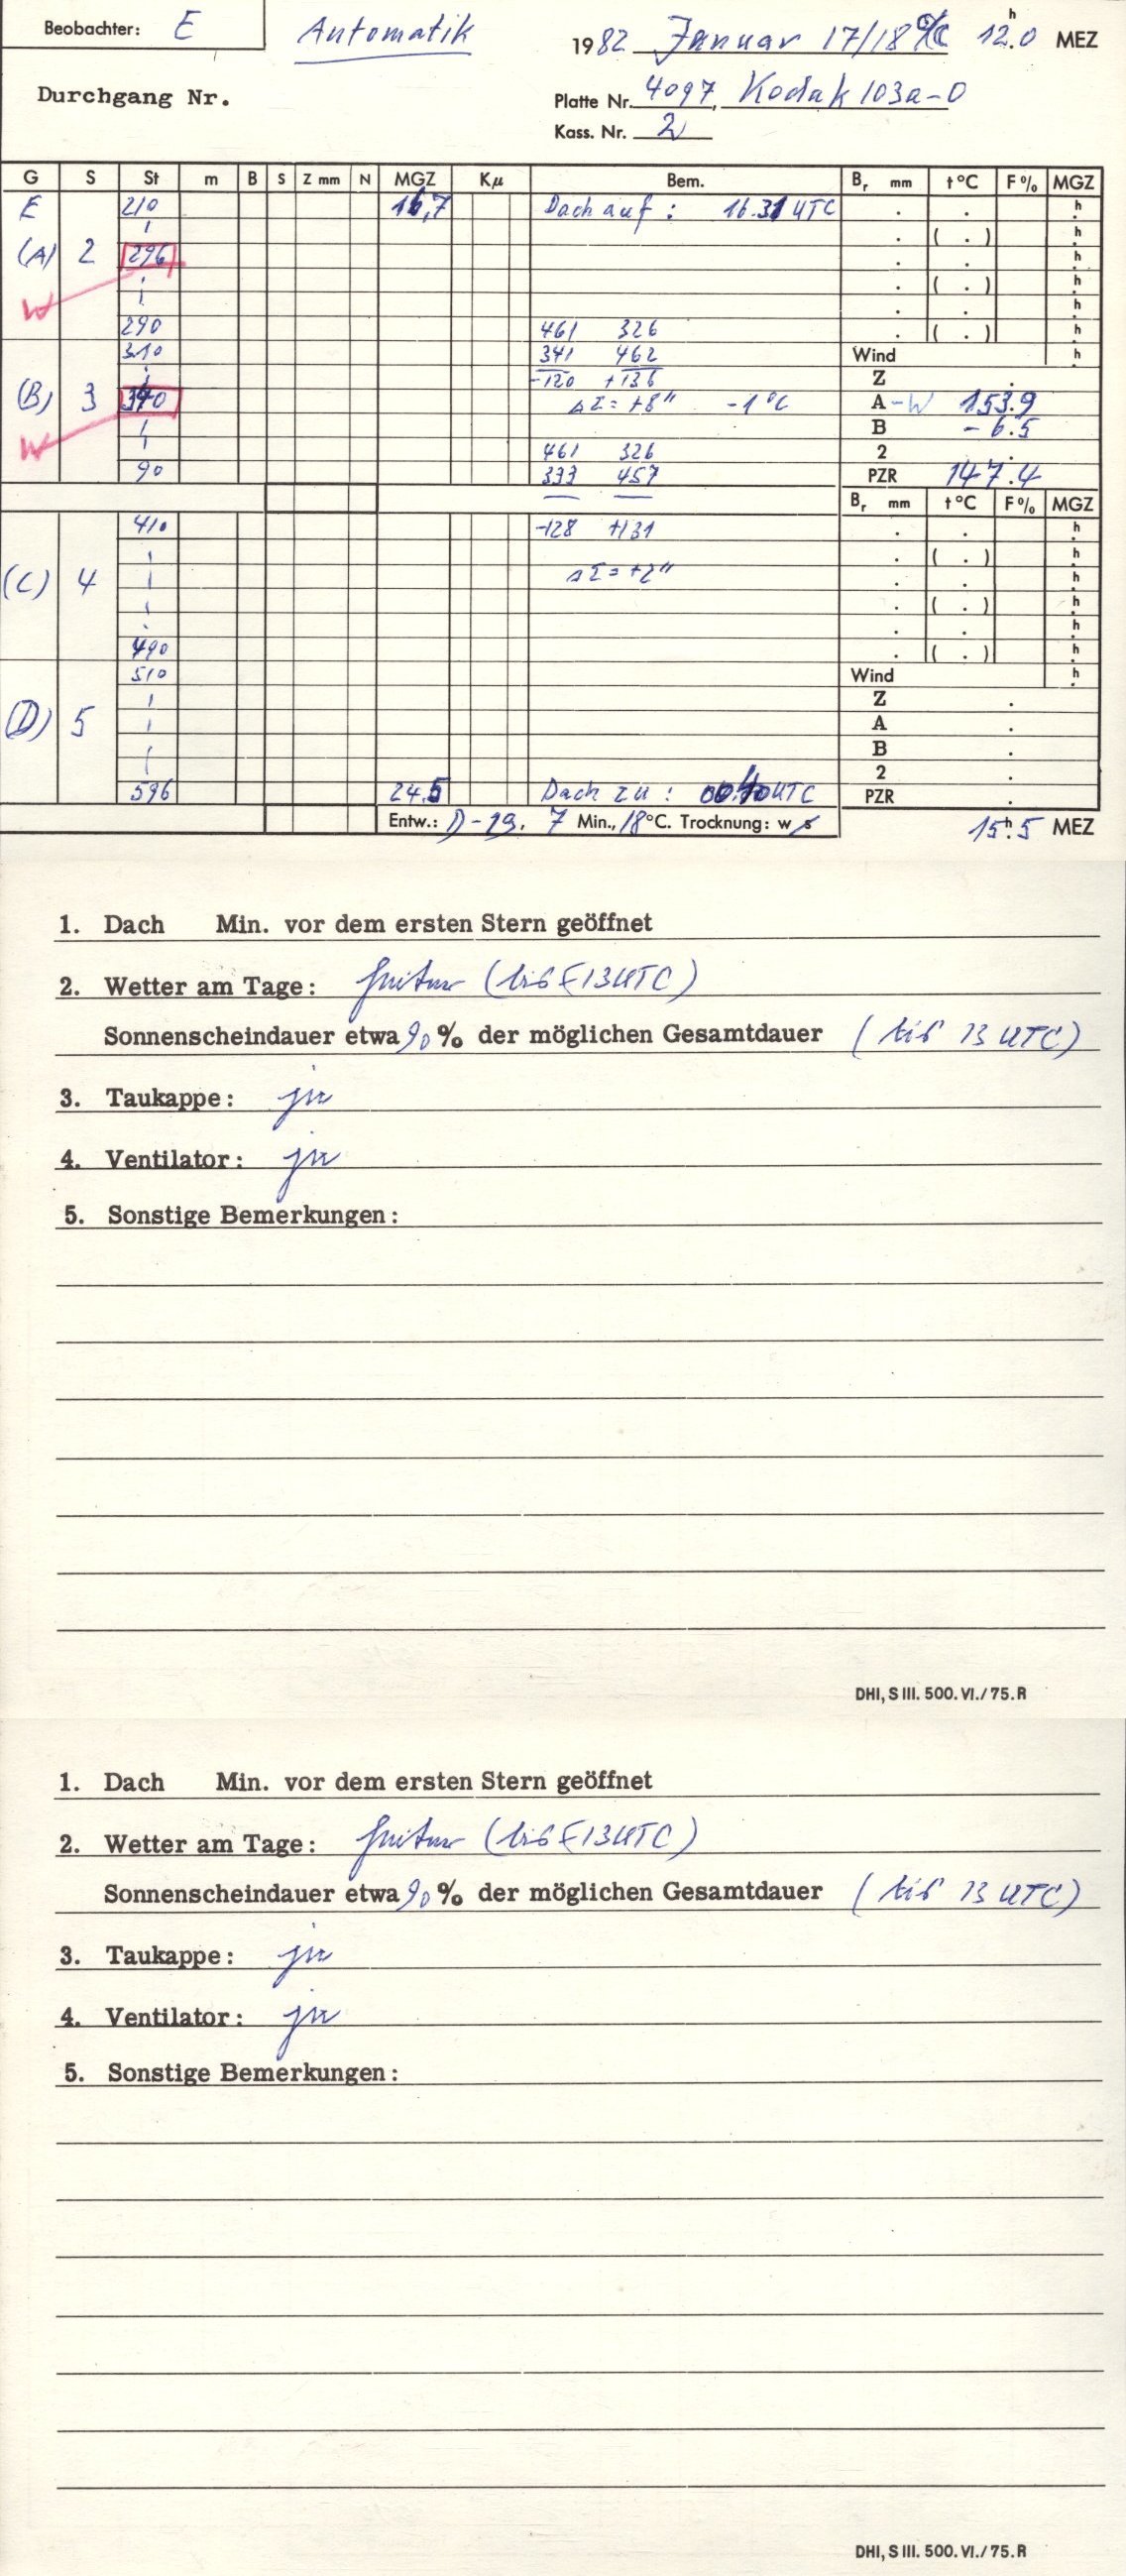 Beobachter: E Automatik 1982 Januar 17/18 12.0 h MEZ
Durchgang Nr. Platte Nr. 4097, Kodak 103a-O
Kass. Nr. 2
G S St m B S Z mm N MGZ Kμ Bem. Br mm t °C F% MGZ
E 210 16,7 Dach auf: 16.31 UTC . . h
. ( . ) h
(A) 2 296 . . h
. ( . ) h
W . . h
290 461 326 . ( . ) h
310 341 462 Wind h
-120 +136 Z .
(B) 3 340 ΔΣ = +8" -1°C A - W 153.9
W B - 6.5
461 326 2 .
90 333 457 PZR 147.4
Br mm t °C F% MGZ
410 -128 +131 . . h
. ( . ) h
(C) 4 ΔΣ = +2" . . h
. ( . ) h
. . h
490 . ( . ) h
510 Wind h
Z .
(D) 5 A .
B .
2 .
596 24.5 Dach zu: UTC PZR .
Entw.: D-19, 7 Min., 18°C. Trocknung: w s 15.5 h MEZ
1. Dach Min. vor dem ersten Stern geöffnet
2. Wetter am Tage: heiter (bis 13 UTC)
Sonnenscheindauer etwa 90 % der möglichen Gesamtdauer (bis 13 UTC)
3. Taukappe: ja
4. Ventilator: ja
5. Sonstige Bemerkungen:
DHI, S III. 500. VI./75. R
1. Dach Min. vor dem ersten Stern geöffnet
2. Wetter am Tage: heiter (bis 13 UTC)
Sonnenscheindauer etwa 90 % der möglichen Gesamtdauer (bis 13 UTC)
3. Taukappe: ja
4. Ventilator: ja
5. Sonstige Bemerkungen:
DHI, S III. 500. VI./75. R